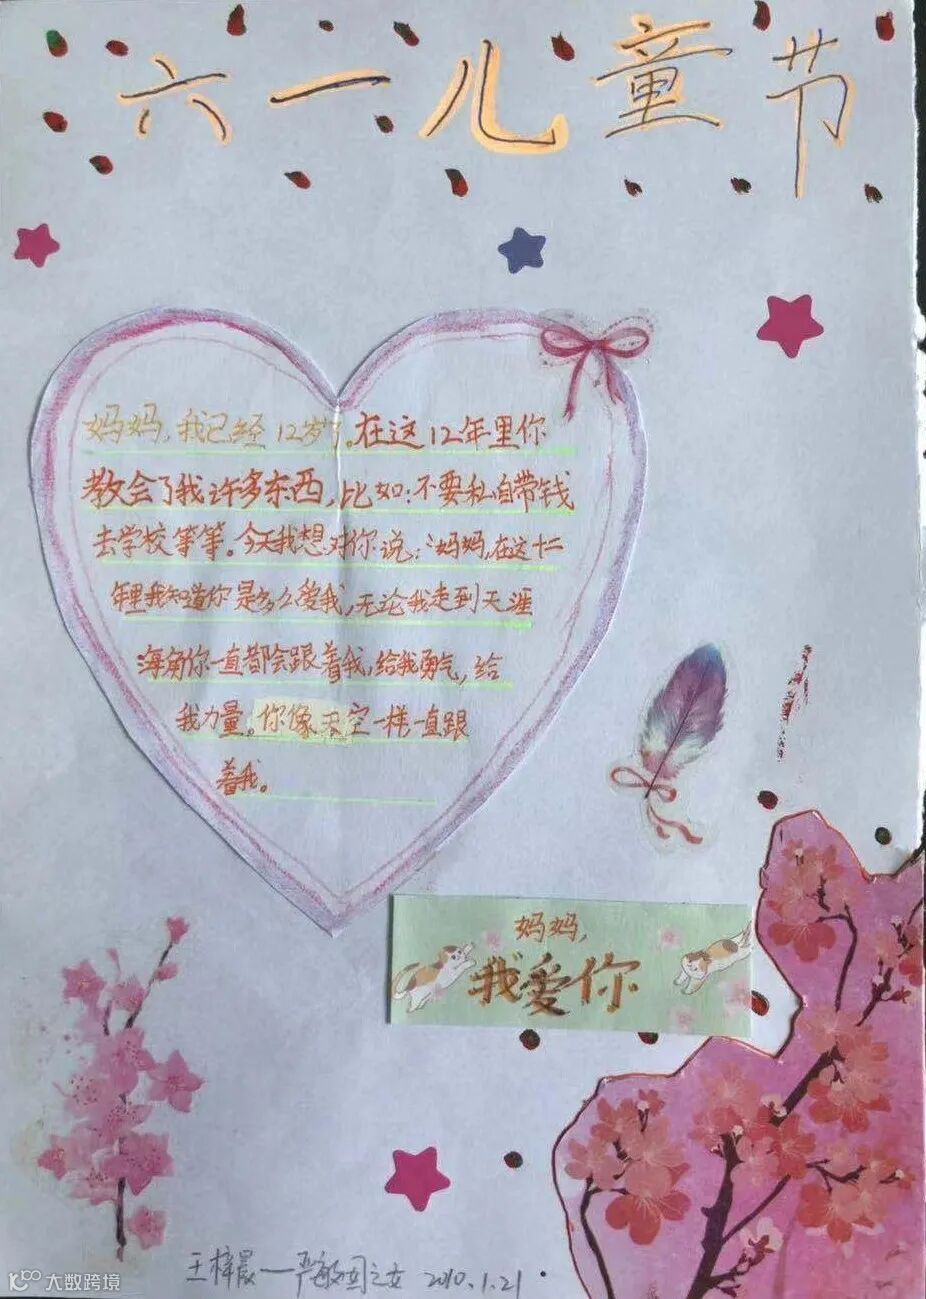 六一儿童节
妈妈,我已经12岁了。在这12年里你
教会了我许多东西,比如:不要私自带钱
去学校等等。今天我想对你说:“妈妈,在这十二
年里我知道你是多么爱我,无论我走到天涯
海角你一直都会跟着我,给我勇气,给
我力量。你像天空一样一直跟
着我。
妈妈,
我爱你
王梓晨—严敏团之女 2010.1.21
大数跨境